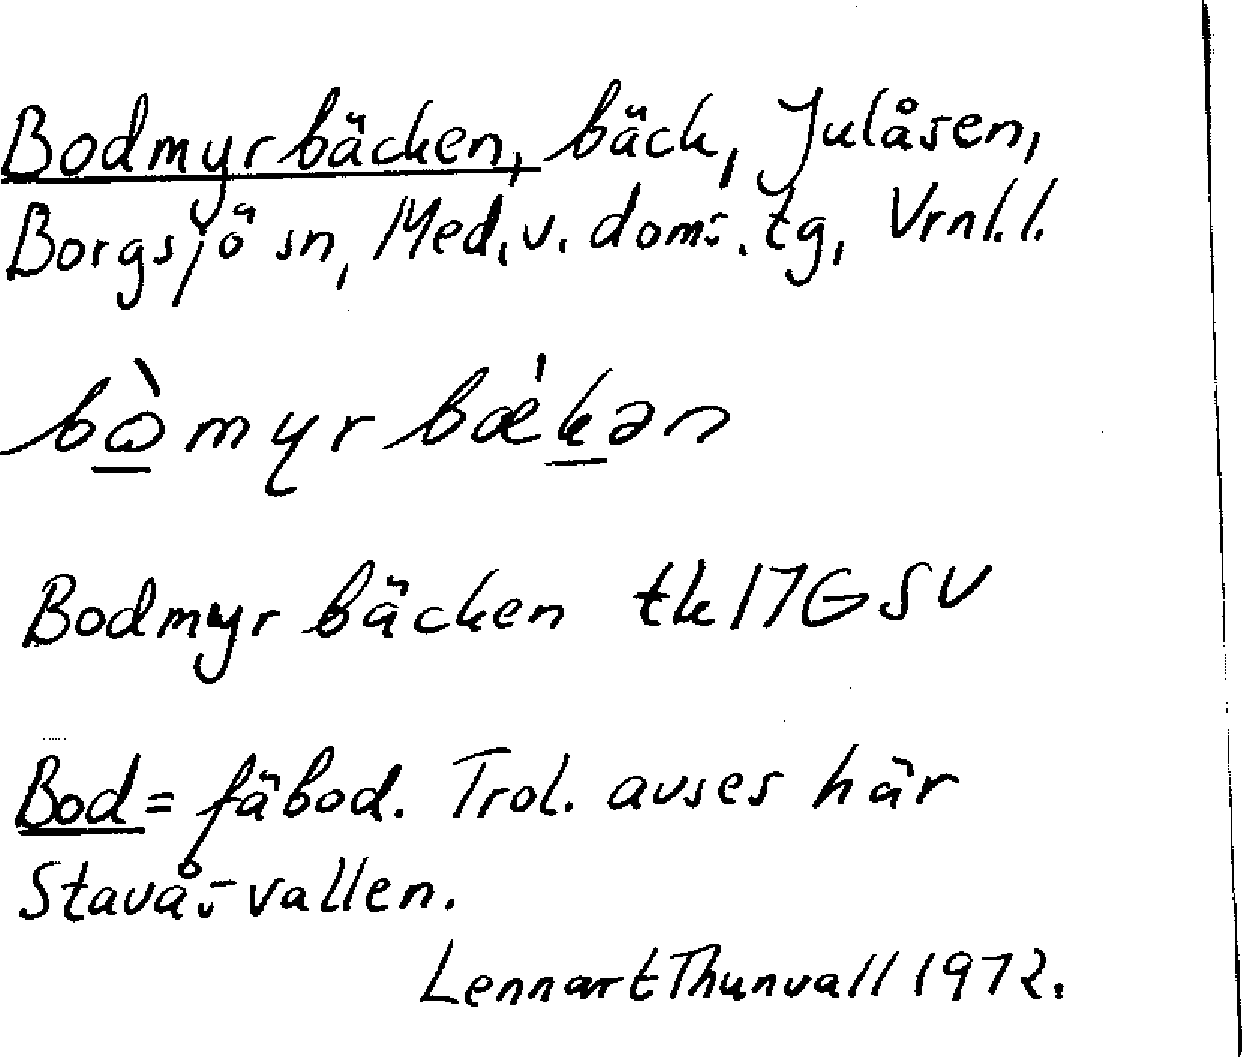 Bodmyrbäcken, bäck, Julåsen,
Borgsjö sn, Med. v. doms. tg, Vrnl. l.
bò̱myrbæ'ḵən
Bodmyrbäcken tk 17GSV
Bod = fäbod. Trol. avses här
Stavås-vallen.
Lennart Thunvall 1972.